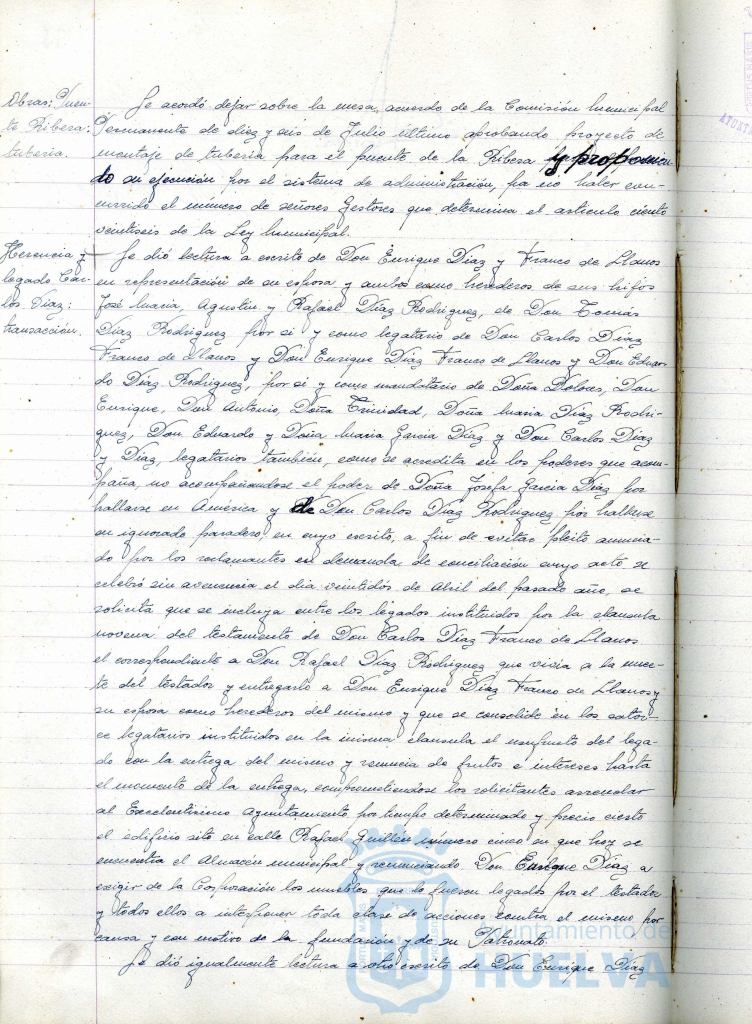 Obras: Puen-
te Ribera:
tubería.
Se acordó dejar sobre la mesa, acuerdo de la Comisión Municipal
Permanente de diez y seis de Julio último aprobando proyecto de
montaje de tubería para el puente de la Ribera y proponien-
do su ejecución por el sistema de administración, por no haber con-
currido el número de señores Gestores que determina el artículo ciento
veintiseis de la Ley Municipal.
Herencia y
legado Car-
los Díaz:
transacción.
Se dió lectura a escrito de Don Enrique Díaz y Franco de Llanos
en representación de su esposa y ambos como herederos de sus hijos
José María, Agustín y Rafael Díaz Rodríguez, de Don Tomás
Díaz Rodríguez por si y como legatario de Don Carlos Díaz
Franco de Llanos y Don Enrique Díaz Franco de Llanos y Don Eduar-
do Díaz Rodríguez, por si y como mandatario de Doña Dolores, Don
Enrique, Don Antonio, Doña Trinidad, Doña María Díaz Rodrí-
guez, Don Eduardo y Doña María García Díaz y Don Carlos Díaz
y Díaz, legatarios también, como se acredita en los poderes que acom-
paña, no acompañandose el poder de Doña Josefa García Díaz por
hallarse en América y de Don Carlos Díaz Rodríguez por hallarse
en ignorado paradero, en cuyo escrito, a fin de evitar pleito anuncia-
do por los reclamantes en demanda de conciliación cuyo acto se
celebró sin avenencia el día veintidós de Abril del pasado año, se
solicita que se incluya entre los legados instituidos por la clausula
novena del testamento de Don Carlos Díaz Franco de Llanos
el correspondiente a Don Rafael Díaz Rodríguez que vivía a la muer-
te del testador y entregarlo a Don Enrique Díaz Franco de Llanos y
su esposa como herederos del mismo y que se consolide en los cator-
ce legatarios instituidos en la misma clausula el usufruto del lega-
do con la entrega del mismo y renuncia de frutos e intereses hasta
el momento de la entrega, comprometiendose los solicitantes arrendar
al Excelentísimo Ayuntamiento por tiempo determinado y precio cierto
el edificio sito en calle Rafael Guillén número cinco en que hoy se
encuentra el Almacén municipal y renunciando Don Enrique Díaz a
exigir de la Corporación los muebles que le fueron legados por el testador
y todos ellos a interponer toda clase de acciones contra el mismo por
causa y con motivo de la fundación y de su Patronato.
Se dió igualmente lectura a otro escrito de Don Enrique Díaz
Ayuntamiento de
HUELVA